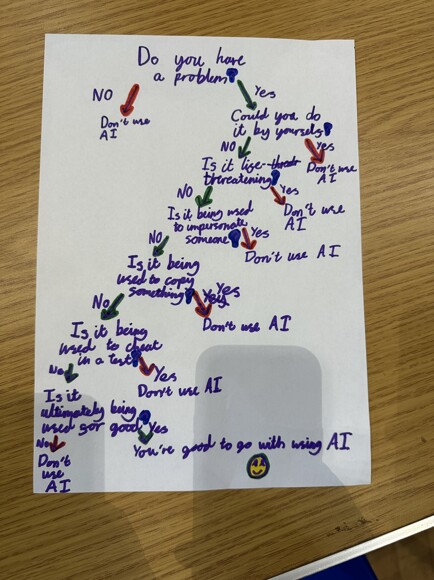 Do you have
a problem?
NO
Yes
Don't use
AI
Could you do
it by yourself?
NO
Yes
Don't use
AI
Is it life
threatening?
NO
Yes
Don't use
AI
Is it being used
to impersonate
someone?
NO
Yes
Don't use AI
Is it being
used to copy
something?
No
Yes
Don't use AI
Is it being
used to cheat
in a test?
No
Yes
Don't use AI
Is it
ultimately being
used for good?
No
Yes
Don't
use
AI
You're good to go with using AI